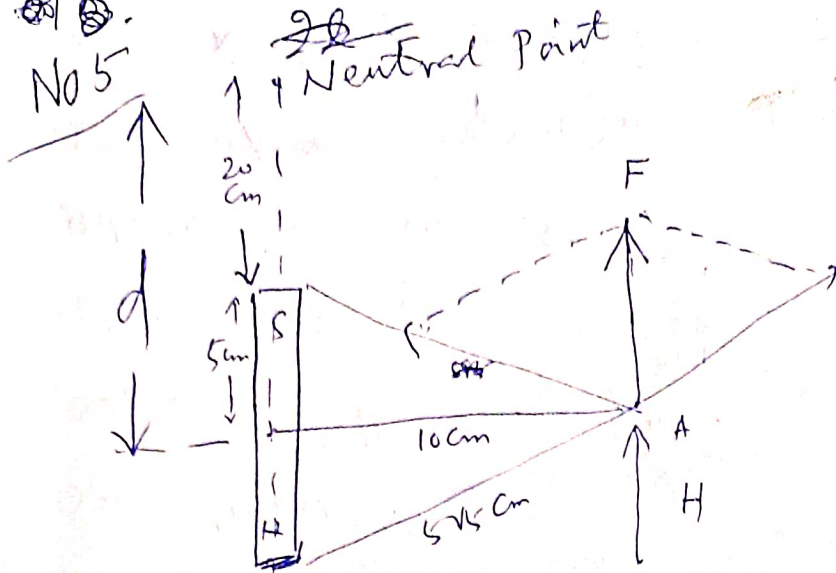 No 5
Neutral Point
20
cm
F
d
S
5cm
10cm
A
5√5 cm
H